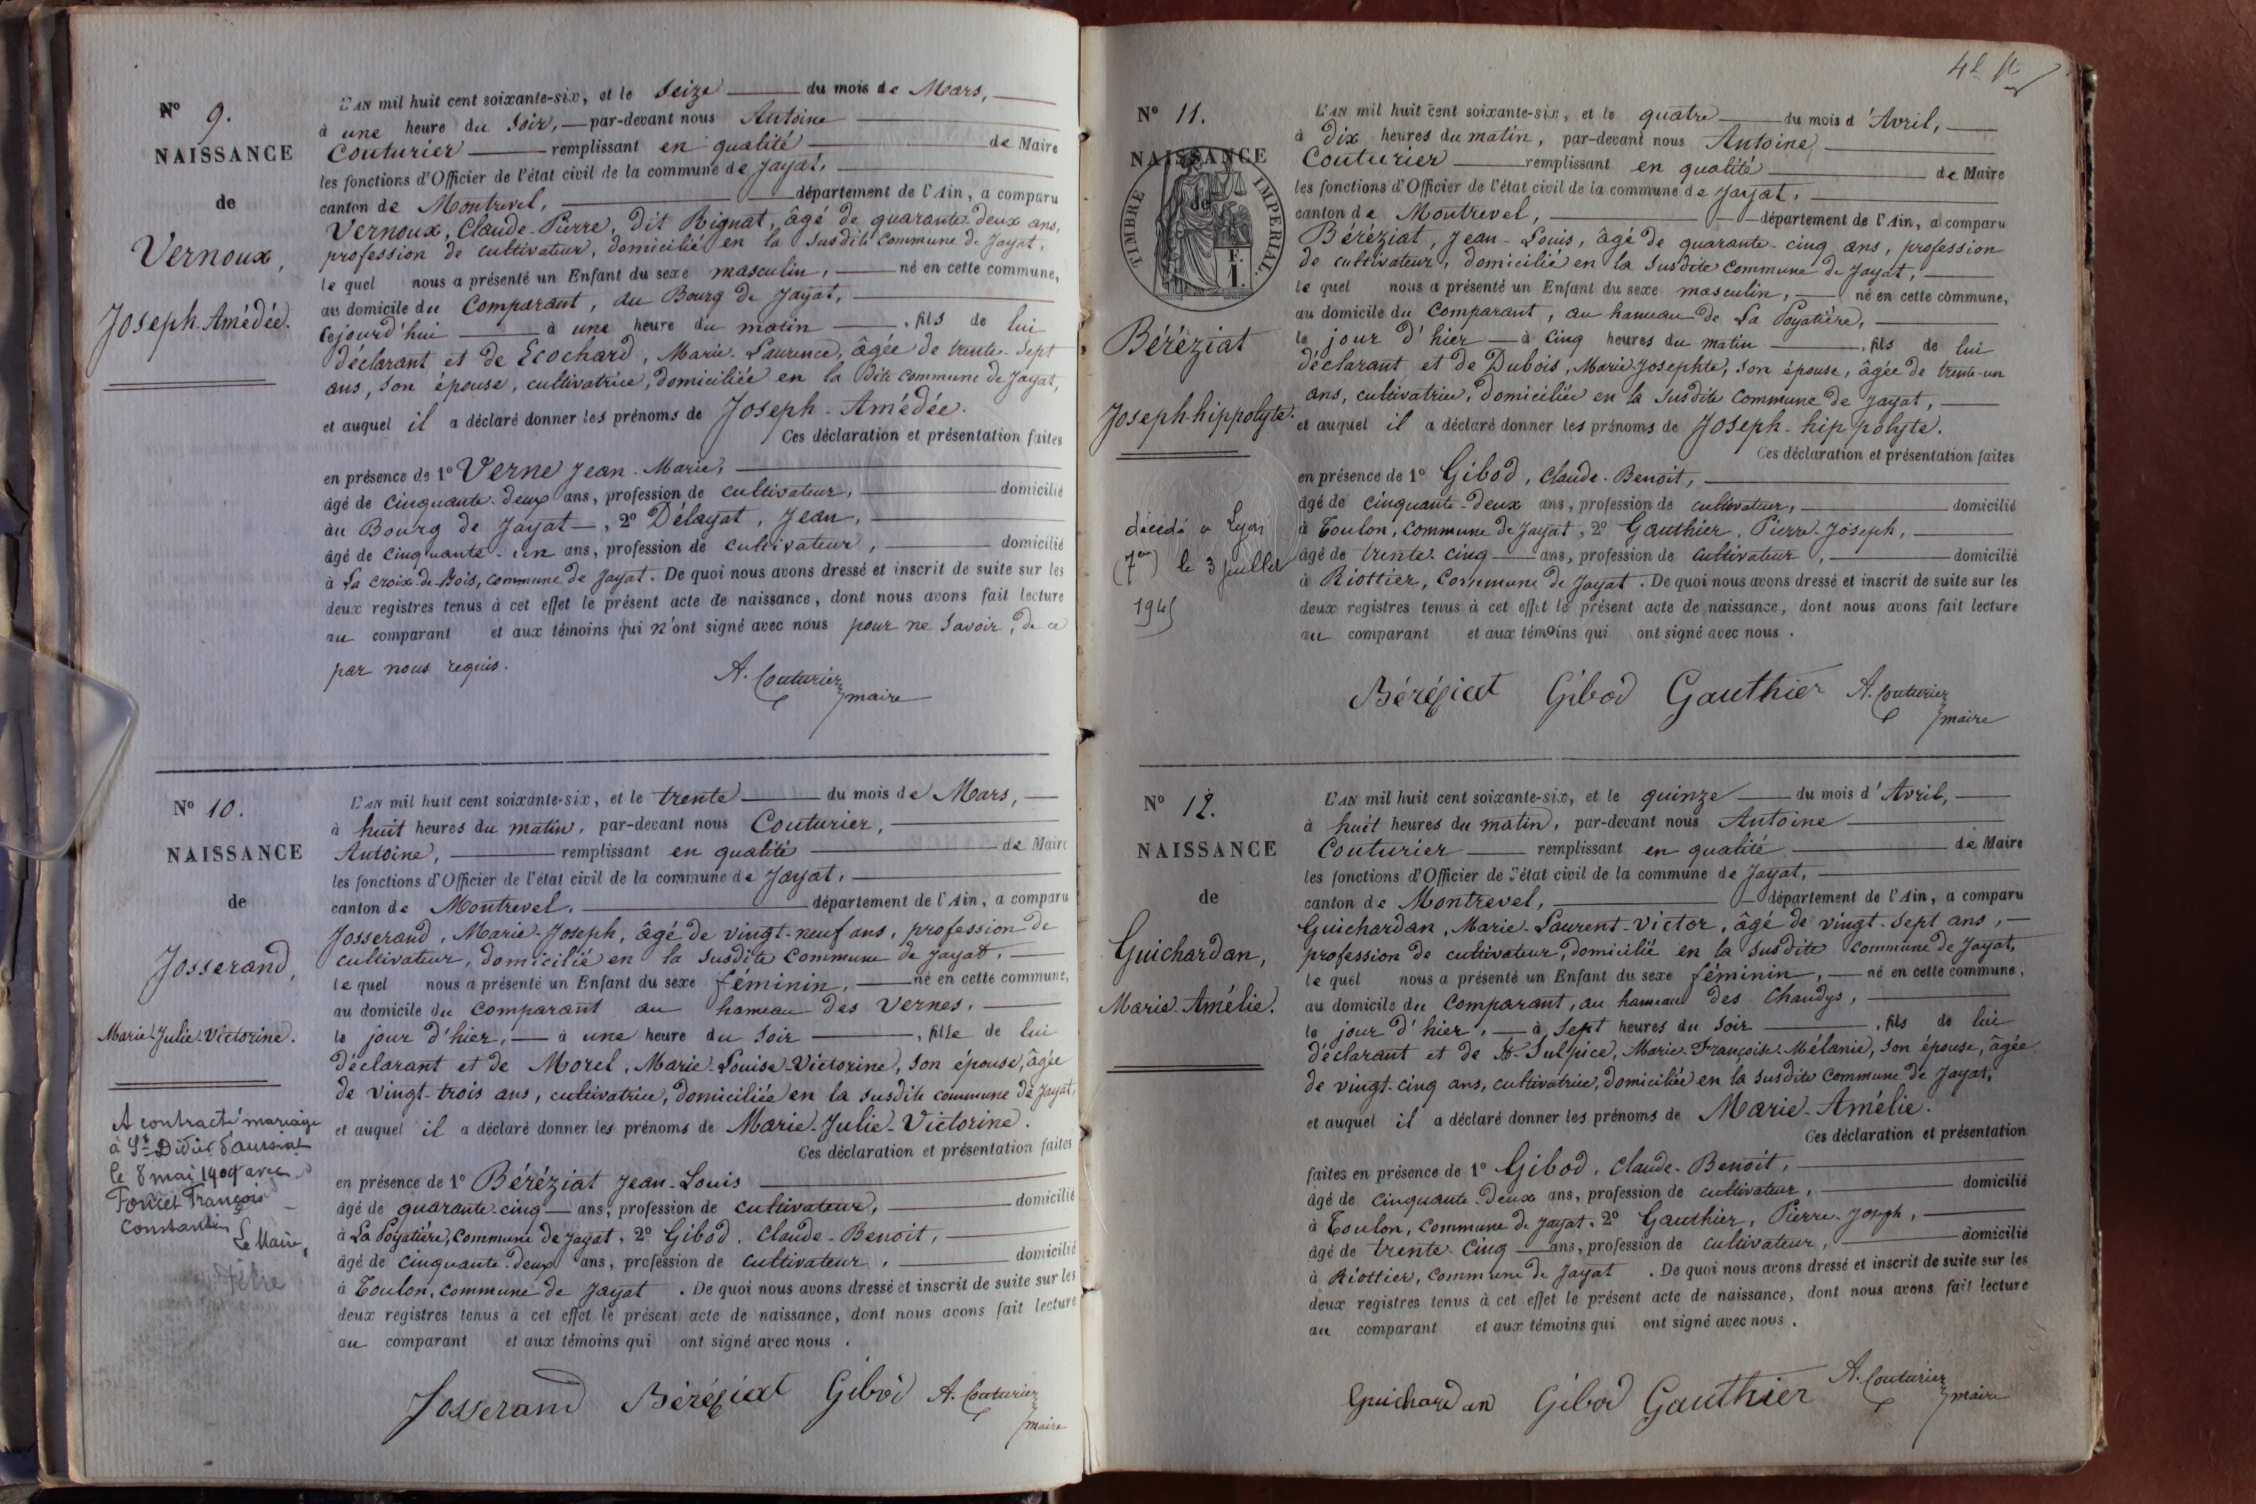 N° 9.
NAISSANCE
de
Vernoux,
Joseph-Amédée.
L'AN mil huit cent soixante-six, et le seize du mois de Mars,
à une heure du soir, par-devant nous Antoine
Couturier remplissant en qualité de Maire
les fonctions d'Officier de l'état civil de la commune de Jayat,
canton de Montrevel, département de l'Ain, a comparu
Vernoux, Claude-Pierre, dit Rignat, âgé de quarante-deux ans,
profession de cultivateur, domicilié en la susdite commune de Jayat,
lequel nous a présenté un Enfant du sexe masculin, né en cette commune,
au domicile du Comparant, au Bourg de Jayat,
Cejourd'hui à une heure du matin, fils de lui
déclarant et de Ecochard, Marie-Laurence, âgée de trente-sept
ans, son épouse, cultivatrice, domiciliée en la dite commune de Jayat,
et auquel il a déclaré donner les prénoms de Joseph-Amédée.
Ces déclaration et présentation faites
en présence de 1° Verne Jean-Marie,
âgé de cinquante-deux ans, profession de cultivateur, domicilié
au Bourg de Jayat, 2° Délayat, Jean,
âgé de cinquante-un ans, profession de cultivateur, domicilié
à La croix-de-Bois, commune de Jayat. De quoi nous avons dressé et inscrit de suite sur les
deux registres tenus à cet effet le présent acte de naissance, dont nous avons fait lecture
au comparant et aux témoins qui n'ont signé avec nous pour ne savoir, de ce
par nous requis.
A. Couturier
maire
N° 10.
NAISSANCE
de
Josserand,
Marie-Julie-Victorine.
A contracté mariage
à St Didier d'aussiat
le 8 mai 1909 avec
François
Constantin
Le Maire,
L'AN mil huit cent soixante-six, et le trente du mois de Mars,
à huit heures du matin, par-devant nous Couturier,
Antoine, remplissant en qualité de Maire
les fonctions d'Officier de l'état civil de la commune de Jayat,
canton de Montrevel, département de l'Ain, a comparu
Josserand, Marie-Joseph, âgé de vingt-neuf ans, profession de
cultivateur, domicilié en la susdite Commune de Jayat,
lequel nous a présenté un Enfant du sexe féminin, né en cette commune,
au domicile du comparant au hameau des Vernes,
le jour d'hier, à une heure du soir, fille de lui
déclarant et de Morel, Marie-Louise-Victorine, son épouse, âgée
de vingt-trois ans, cultivatrice, domiciliée en la susdite commune de Jayat,
et auquel il a déclaré donner les prénoms de Marie-Julie-Victorine.
Ces déclaration et présentation faites
en présence de 1° Béréziat Jean-Louis
âgé de quarante-cinq ans, profession de cultivateur, domicilié
à La Poyatière, Commune de Jayat, 2° Gibod, Claude-Benoit,
âgé de cinquante-deux ans, profession de cultivateur, domicilié
à Toulon, commune de Jayat. De quoi nous avons dressé et inscrit de suite sur les
deux registres tenus à cet effet le présent acte de naissance, dont nous avons fait lecture
au comparant et aux témoins qui ont signé avec nous.
Josserand Béréziat Gibod A. Couturier
maire
N° 11.
NAISSANCE
de
TIMBRE IMPÉRIAL.
F.
1.
Béréziat
Joseph-hippolyte.
décédé à Lyon
(7em) le 3 juillet
1945
L'AN mil huit cent soixante-six, et le quatre du mois d'Avril,
à dix heures du matin, par-devant nous Antoine
Couturier remplissant en qualité de Maire
les fonctions d'Officier de l'état civil de la commune de Jayat,
canton de Montrevel, département de l'Ain, a comparu
Béréziat, Jean-Louis, âgé de quarante-cinq ans, profession
de cultivateur, domicilié en la susdite commune de Jayat,
lequel nous a présenté un Enfant du sexe masculin, né en cette commune,
au domicile du Comparant, au hameau de La Poyatière,
le jour d'hier à cinq heures du matin, fils de lui
déclarant et de Dubois, Marie-Josephte, son épouse, âgée de trente-un
ans, cultivatrice, domiciliée en la susdite commune de Jayat,
et auquel il a déclaré donner les prénoms de Joseph-hippolyte.
Ces déclaration et présentation faites
en présence de 1° Gibod, Claude-Benoit,
âgé de cinquante-deux ans, profession de cultivateur, domicilié
à Toulon, commune de Jayat, 2° Gauthier, Pierre-Joseph,
âgé de trente-cinq ans, profession de cultivateur, domicilié
à Riottier, Commune de Jayat. De quoi nous avons dressé et inscrit de suite sur les
deux registres tenus à cet effet le présent acte de naissance, dont nous avons fait lecture
au comparant et aux témoins qui ont signé avec nous.
Béréziat Gibod Gauthier A. Couturier
maire
N° 12.
NAISSANCE
de
Guichardan,
Marie-Amélie.
L'AN mil huit cent soixante-six, et le quinze du mois d'Avril,
à huit heures du matin, par-devant nous Antoine
Couturier remplissant en qualité de Maire
les fonctions d'Officier de l'état civil de la commune de Jayat,
canton de Montrevel, département de l'Ain, a comparu
Guichardan, Marie-Laurent-Victor, âgé de vingt-sept ans,
profession de cultivateur, domicilié en la susdite commune de Jayat,
lequel nous a présenté un Enfant du sexe féminin, né en cette commune,
au domicile du Comparant, au hameau des Chaudys,
le jour d'hier, à sept heures du soir, fils de lui
déclarant et de St-Sulpice, Marie-Françoise-Mélanie, son épouse, âgée
de vingt-cinq ans, cultivatrice, domiciliée en la susdite commune de Jayat,
et auquel il a déclaré donner les prénoms de Marie-Amélie.
Ces déclaration et présentation
faites en présence de 1° Gibod, Claude-Benoit,
âgé de cinquante-deux ans, profession de cultivateur, domicilié
à Toulon, commune de Jayat, 2° Gauthier, Pierre-Joseph,
âgé de trente-cinq ans, profession de cultivateur, domicilié
à Riottier, commune de Jayat. De quoi nous avons dressé et inscrit de suite sur les
deux registres tenus à cet effet le présent acte de naissance, dont nous avons fait lecture
au comparant et aux témoins qui ont signé avec nous.
Guichardan Gibod Gauthier A. Couturier
maire